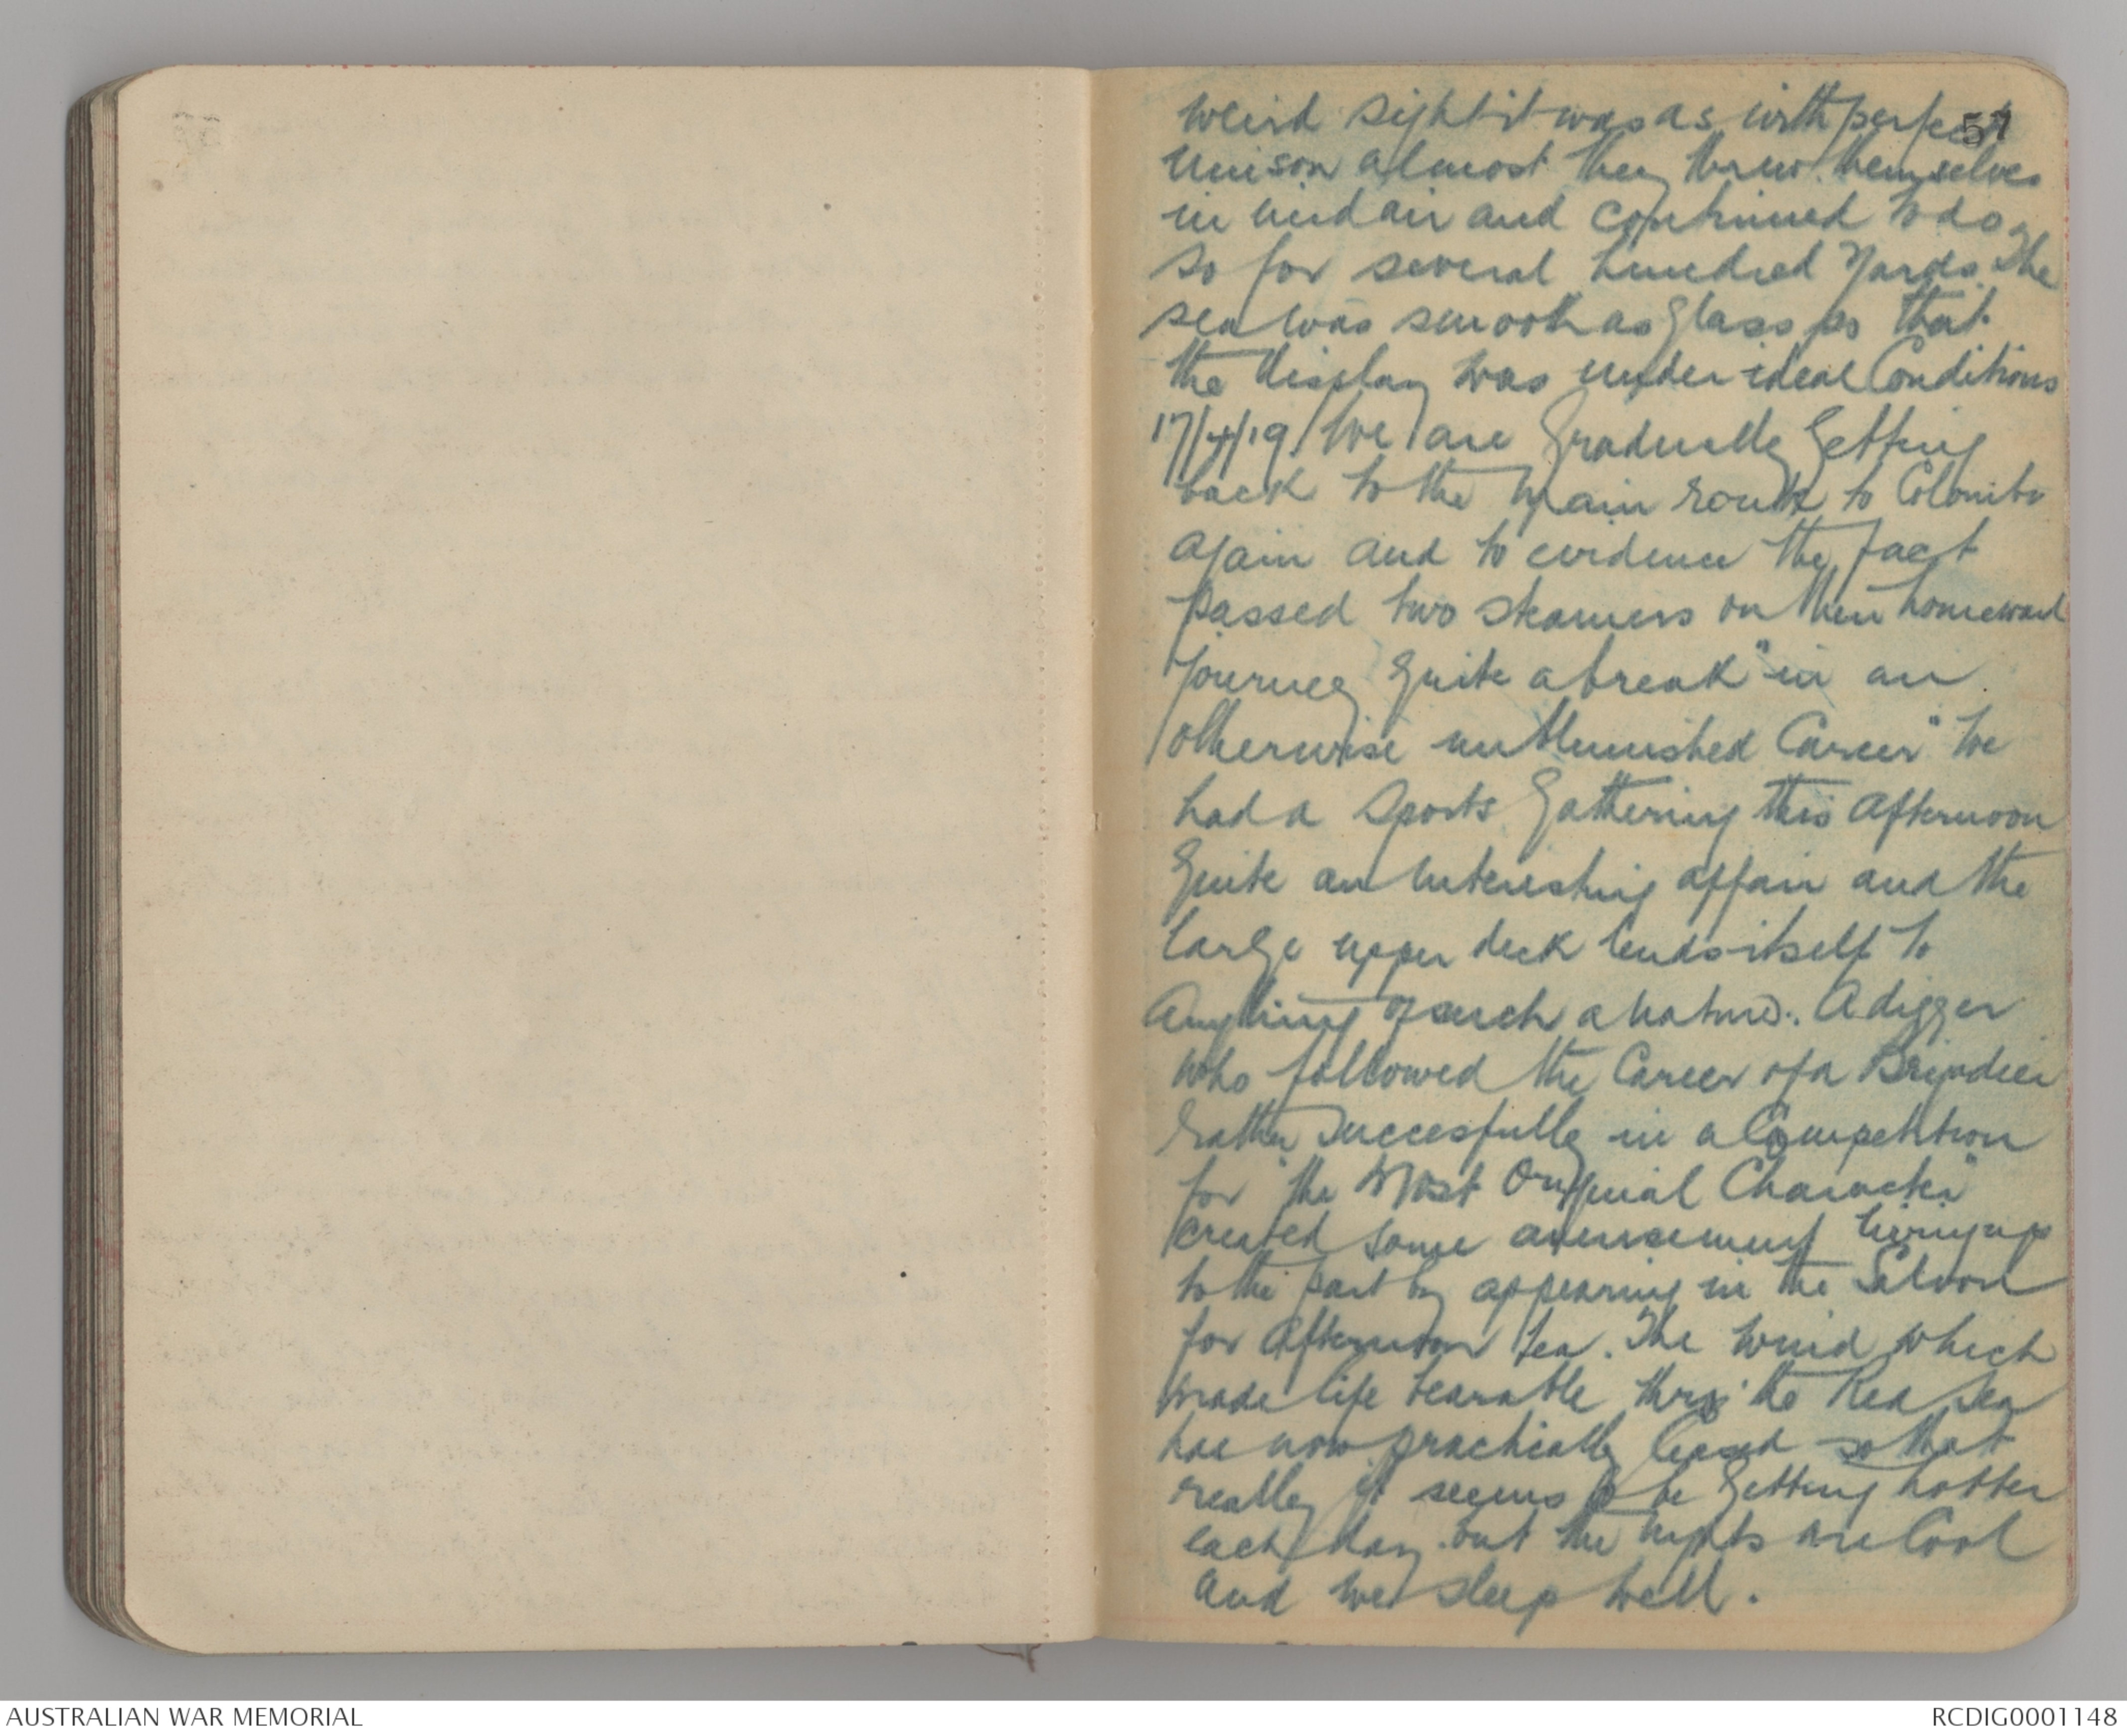 57
weird sight it was as with perfect
unison almost they threw themselves
in mid air and continued to do
so for several hundred yards. The
sea was smooth as glass so that
the display was under ideal Conditions
17/4/19 We are gradually getting
back to the main route to Colombo
again and to evidence the fact
passed two steamers on their homeward
journey quite a break "in an
otherwise unblemished Career" We
had a Sports Gathering this afternoon
Quite an interesting affair and the
large upper deck lends itself to
Anything of such a nature. A digger
who followed the Career of a Brigadier
rather succesfully in a Competition
for "the Most Original Character"
created some amusement living up
to the part by appearing in the Saloon
for afternoon tea. The wind which
made life bearable thro' the Red Sea
has now practically ceased so that
really it seems to be getting hotter
each day but the nights are Cool
and we sleep well.
AUSTRALIAN WAR MEMORIAL
RCDIG0001148